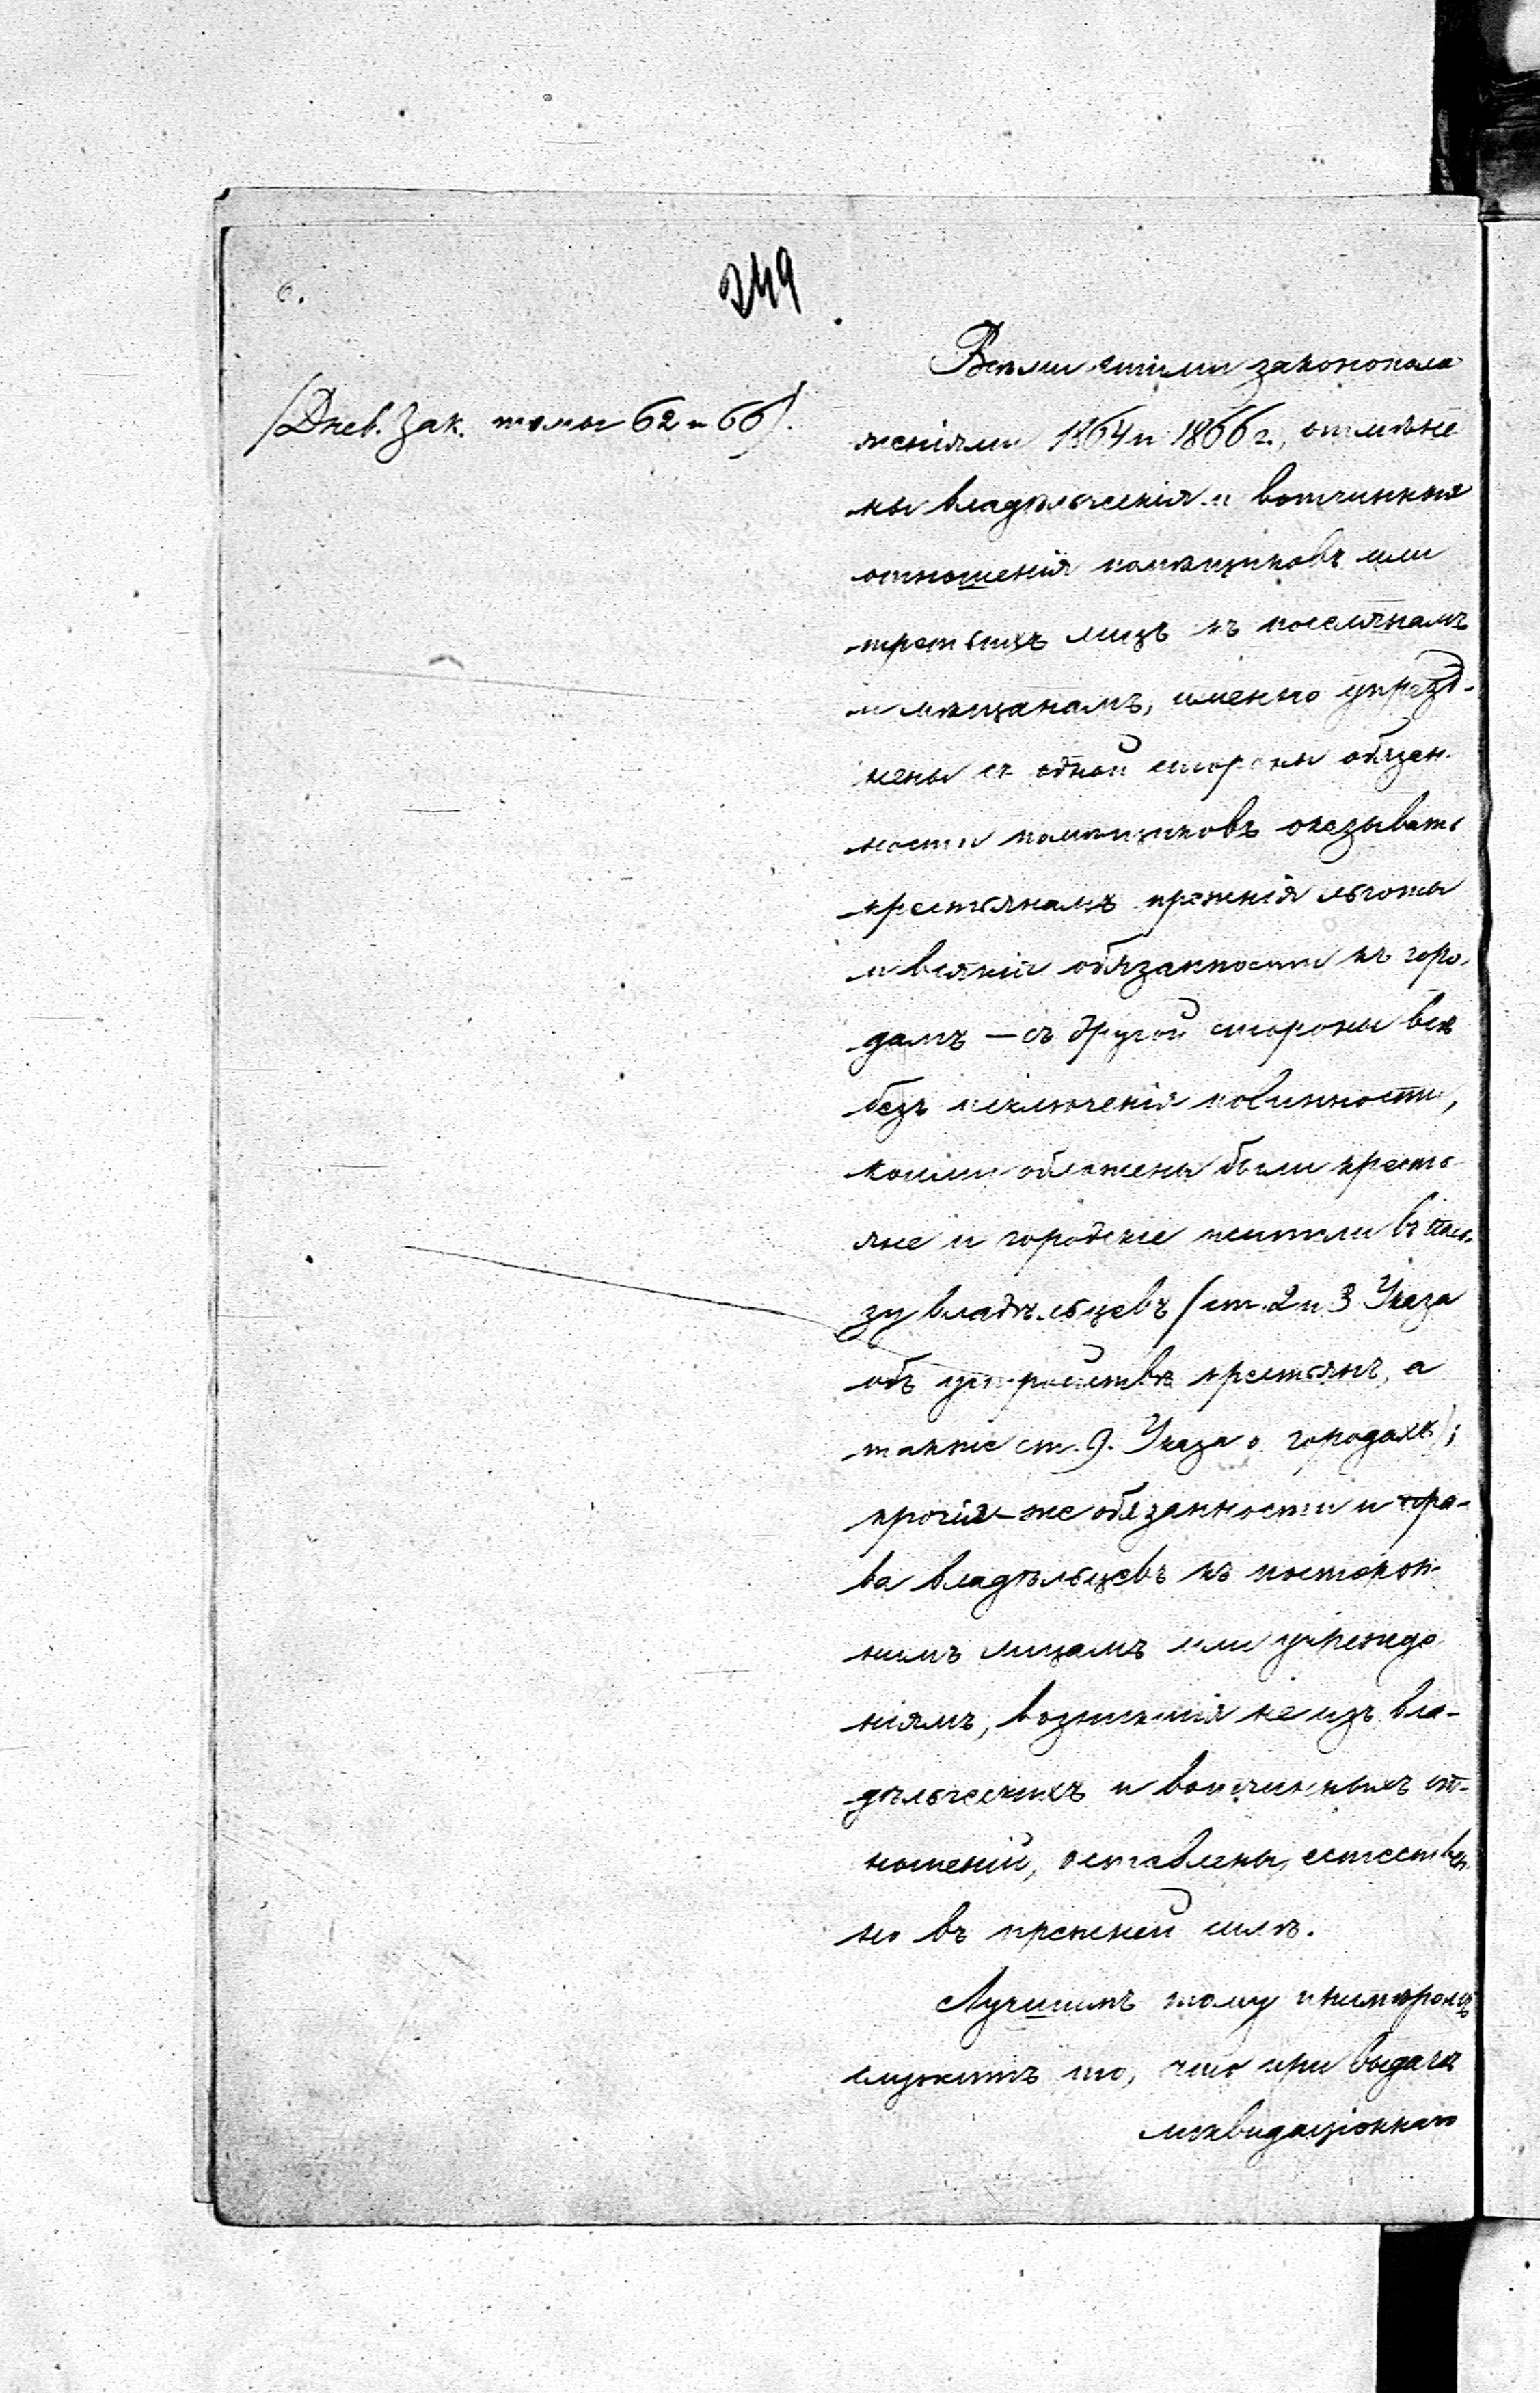 249
6.
(Днев. Зак. томы 62 и 66).
Всѣми этими законополо
женіями 1864 и 1866 г., отмѣне
ны владѣльческія и вотчинныя
отношенія помѣщиковъ или
третьихъ лицъ къ поселянамъ
и мѣщанамъ, именно упразд-
нены съ одной стороны обязан-
ности помѣщиковъ оказывать
крестьянамъ прежнія льготы
и всякія обязанности къ горо-
дамъ — съ другой стороны всѣ
безъ исключенія повинности,
коими обложены были кресть
яне и городскіе жители въ поль-
зу владѣльцевъ (ст. 2 и 3 Указа
объ устройствѣ крестьянъ, а
также ст. 9. Указа о городахъ);
прочія-же обязанности и пра-
ва владѣльцевъ къ посторон-
нимъ лицамъ или учрежде
ніямъ, возникшія не изъ вла-
дѣльческихъ и вотчинныхъ от-
ношеній, оставлены, естествен
но въ прежней силѣ.
Лучшимъ тому
служитъ то, что при выдачѣ
ликвидаціоннаго